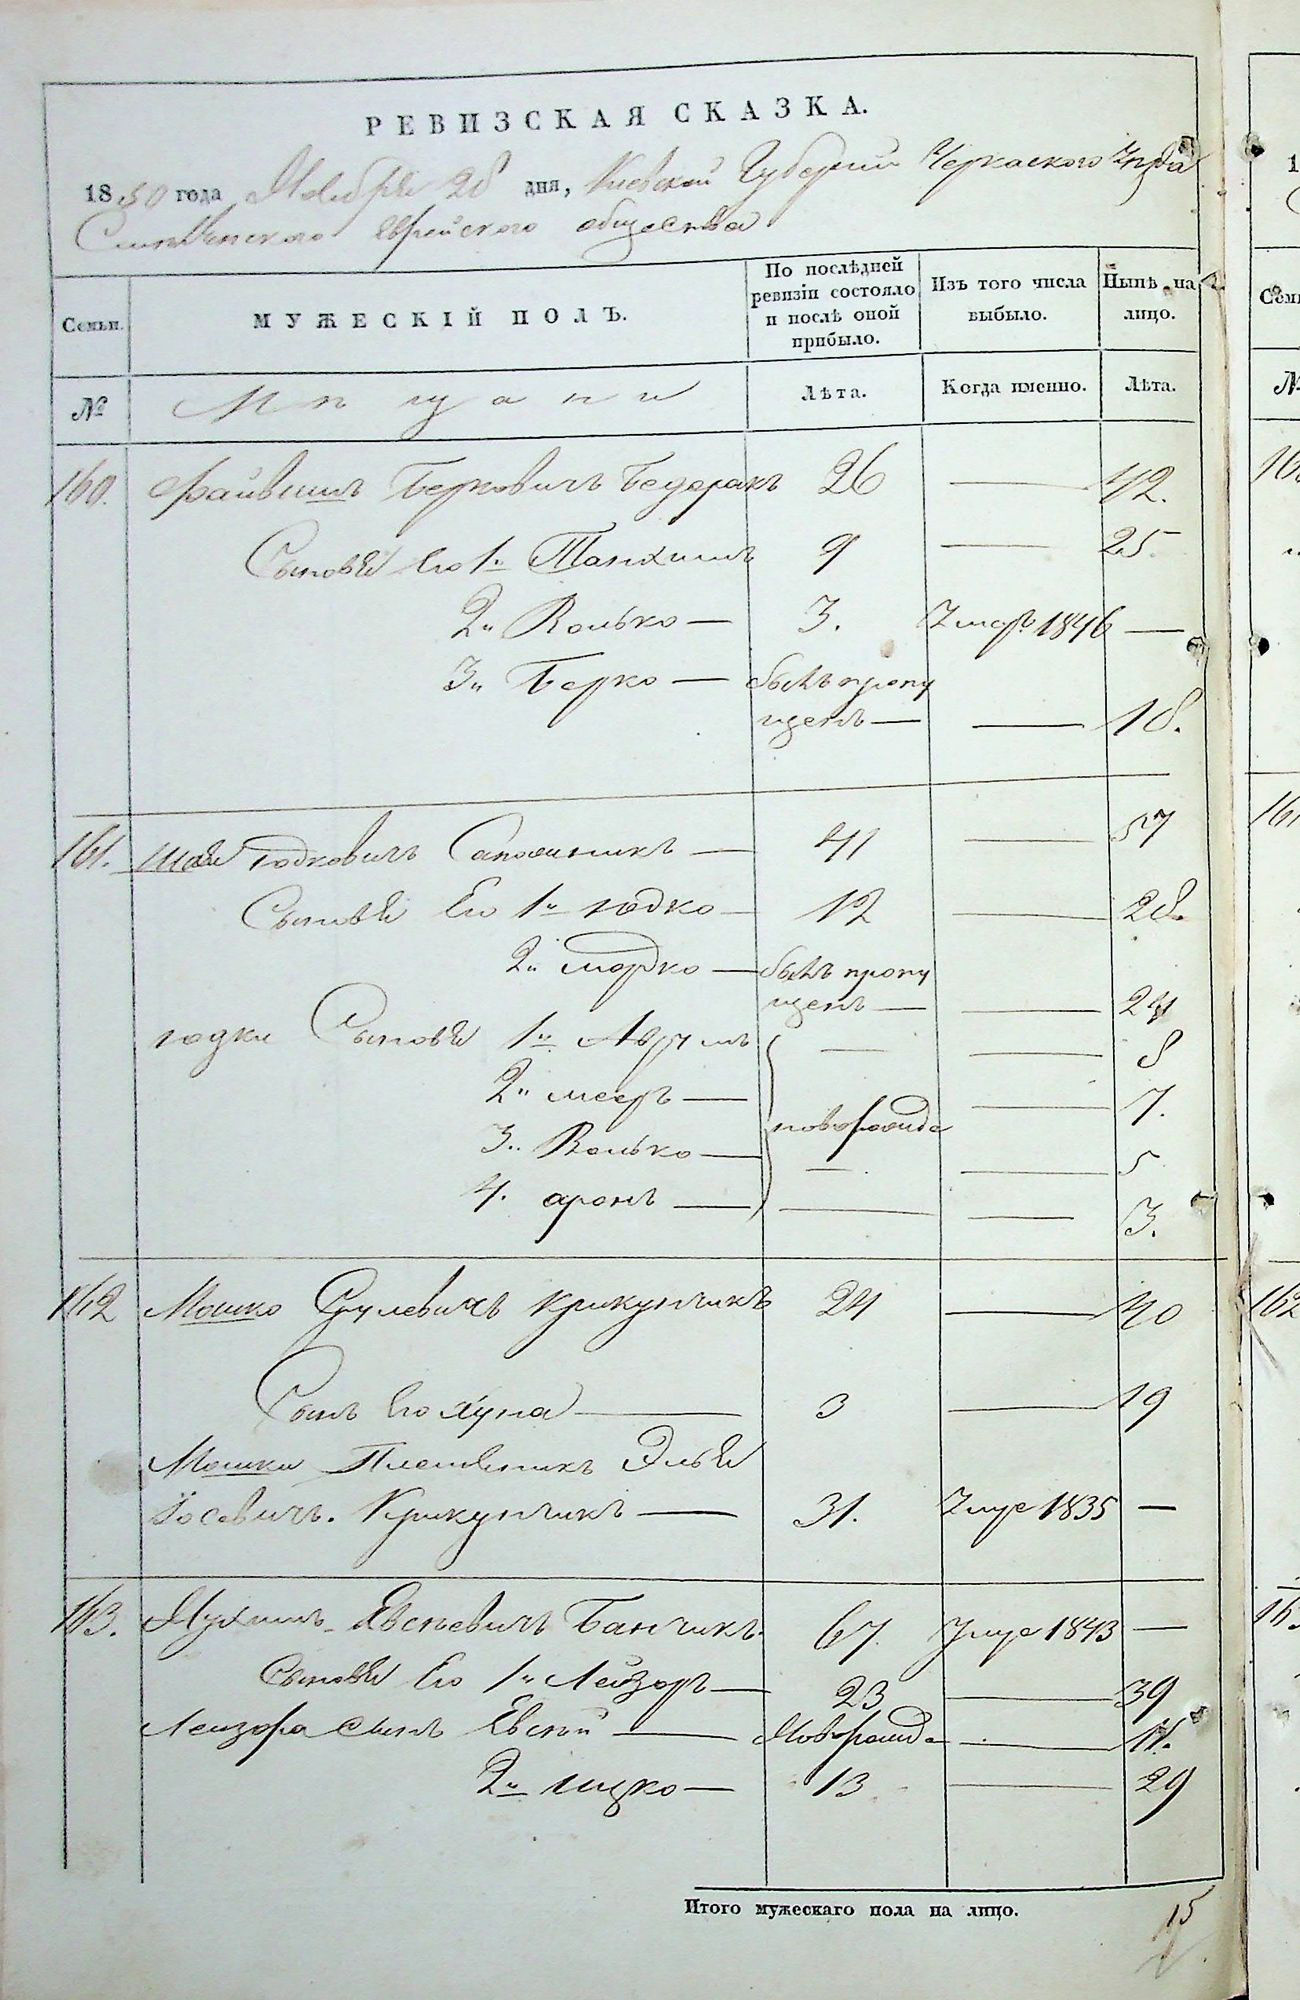 РЕВИЗСКАЯ СКАЗКА.
1850 года Ноября 28 дня, Киевской Губернии Черкаского Уѣзда
еврейского общества
Семьи. МУЖЕСКІЙ ПОЛЪ. По послѣдней ревизіи состояло и послѣ оной прибыло. Изъ того числа выбыло. Нынѣ на лицо.
№ Мѣщани Лѣта. Когда именно. Лѣта.
160. Файвишъ Берковичъ 26 — 42.
Сыновья Его 1й Танхимъ 9 — 25.
2й Волько — 3. Умеръ 1846 —
3й Берко — былъ пропу
щенъ — — 18.
161. Шая Іодковичъ Сапожникъ — 41 — 57
Сыновья Его 1й Іодко — 12 — 28.
2й Мордко — былъ пропу
щенъ — — 24
Іодки Сыновья 1й Аврумъ — — 8
2й Мееръ — — 7.
новорожде
3й Волько — — — 5
4. Аронъ — — — 3.
162 Мошко Срулевичъ Крикунчикъ 24 — 40
Сынъ Его Хуна — 3 — 19
Мошки Племяникъ Элья
Іосевичъ Крикунчикъ — 31. Умре 1835 —
163. Нухимъ Явсѣевичъ Банчикъ. 67. Умре 1843 —
Сыновья Его 1й Лейзоръ — 23 — 39
Лейзора Сынъ Евсѣй — Новорожде — 11.
2й Ицко — 13 — 29
Итого мужескаго пола на лицо. 15